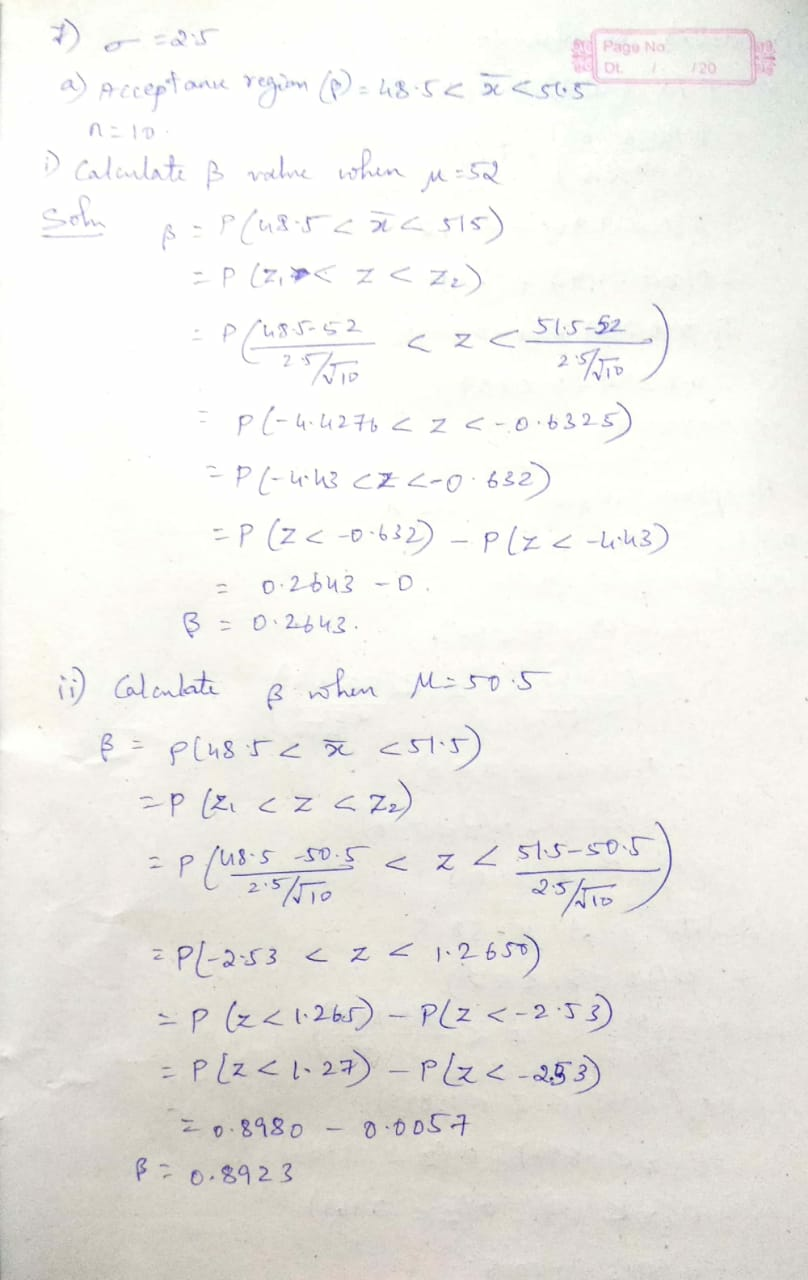 7) σ = 2.5
Page No.
Dt. / /20
a) Acceptance region (β) = 48.5 < x̄ < 51.5
n = 10.
i) Calculate β value when μ = 52
Soln β = P(48.5 < x̄ < 515)
= P (z₁ < z < z₂)
= P ( (48.5-52)/(2.5/√10) < z < (51.5-52)/(2.5/√10) )
= P(-4.4276 < z < -0.6325)
= P(-4.43 < z < -0.632)
= P (z < -0.632) - P(z < -4.43)
= 0.2643 - 0.
β = 0.2643.
ii) Calculate β when M = 50.5
β = P(48.5 < x̄ < 51.5)
= P (z₁ < z < z₂)
= P ( (48.5-50.5)/(2.5/√10) < z < (51.5-50.5)/(2.5/√10) )
= P(-2.53 < z < 1.2650)
= P (z < 1.265) - P(z < -2.53)
= P(z < 1.27) - P(z < -2.53)
= 0.8980 - 0.0057
β = 0.8923